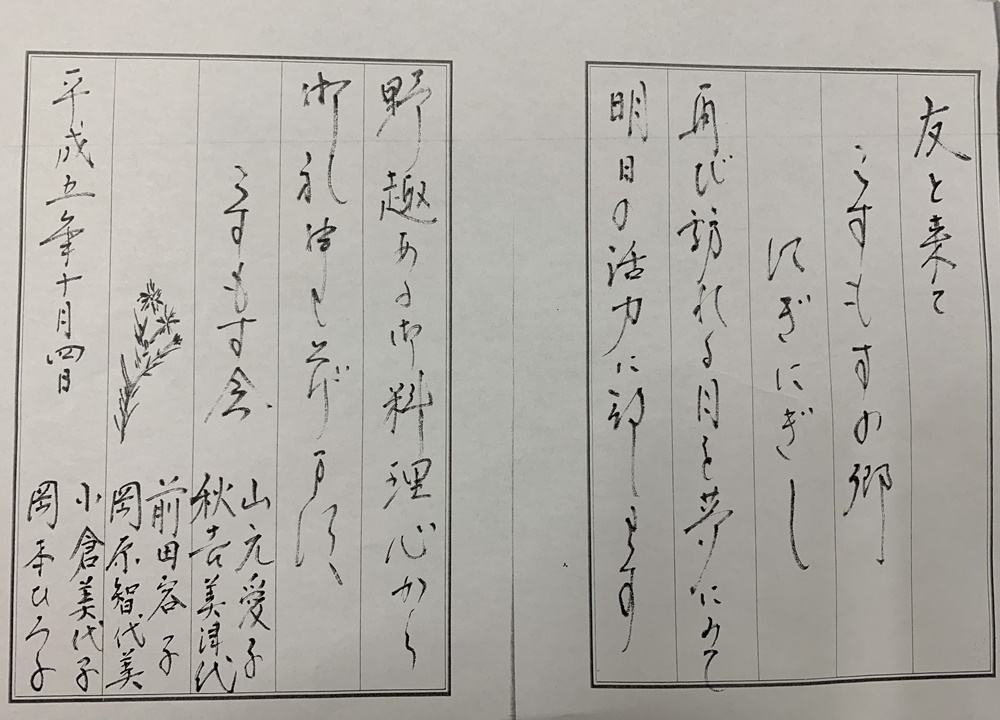 友と来て
こすもすの郷
にぎにぎし
再び訪れる日を夢にみて
明日の活力に致します
野趣ある御料理心から
御礼申し上げます
こすもす会
平成五年十月四日
山元愛子
秋吉美津代
前田容子
岡原智代美
小倉美代子
岡本ひろ子